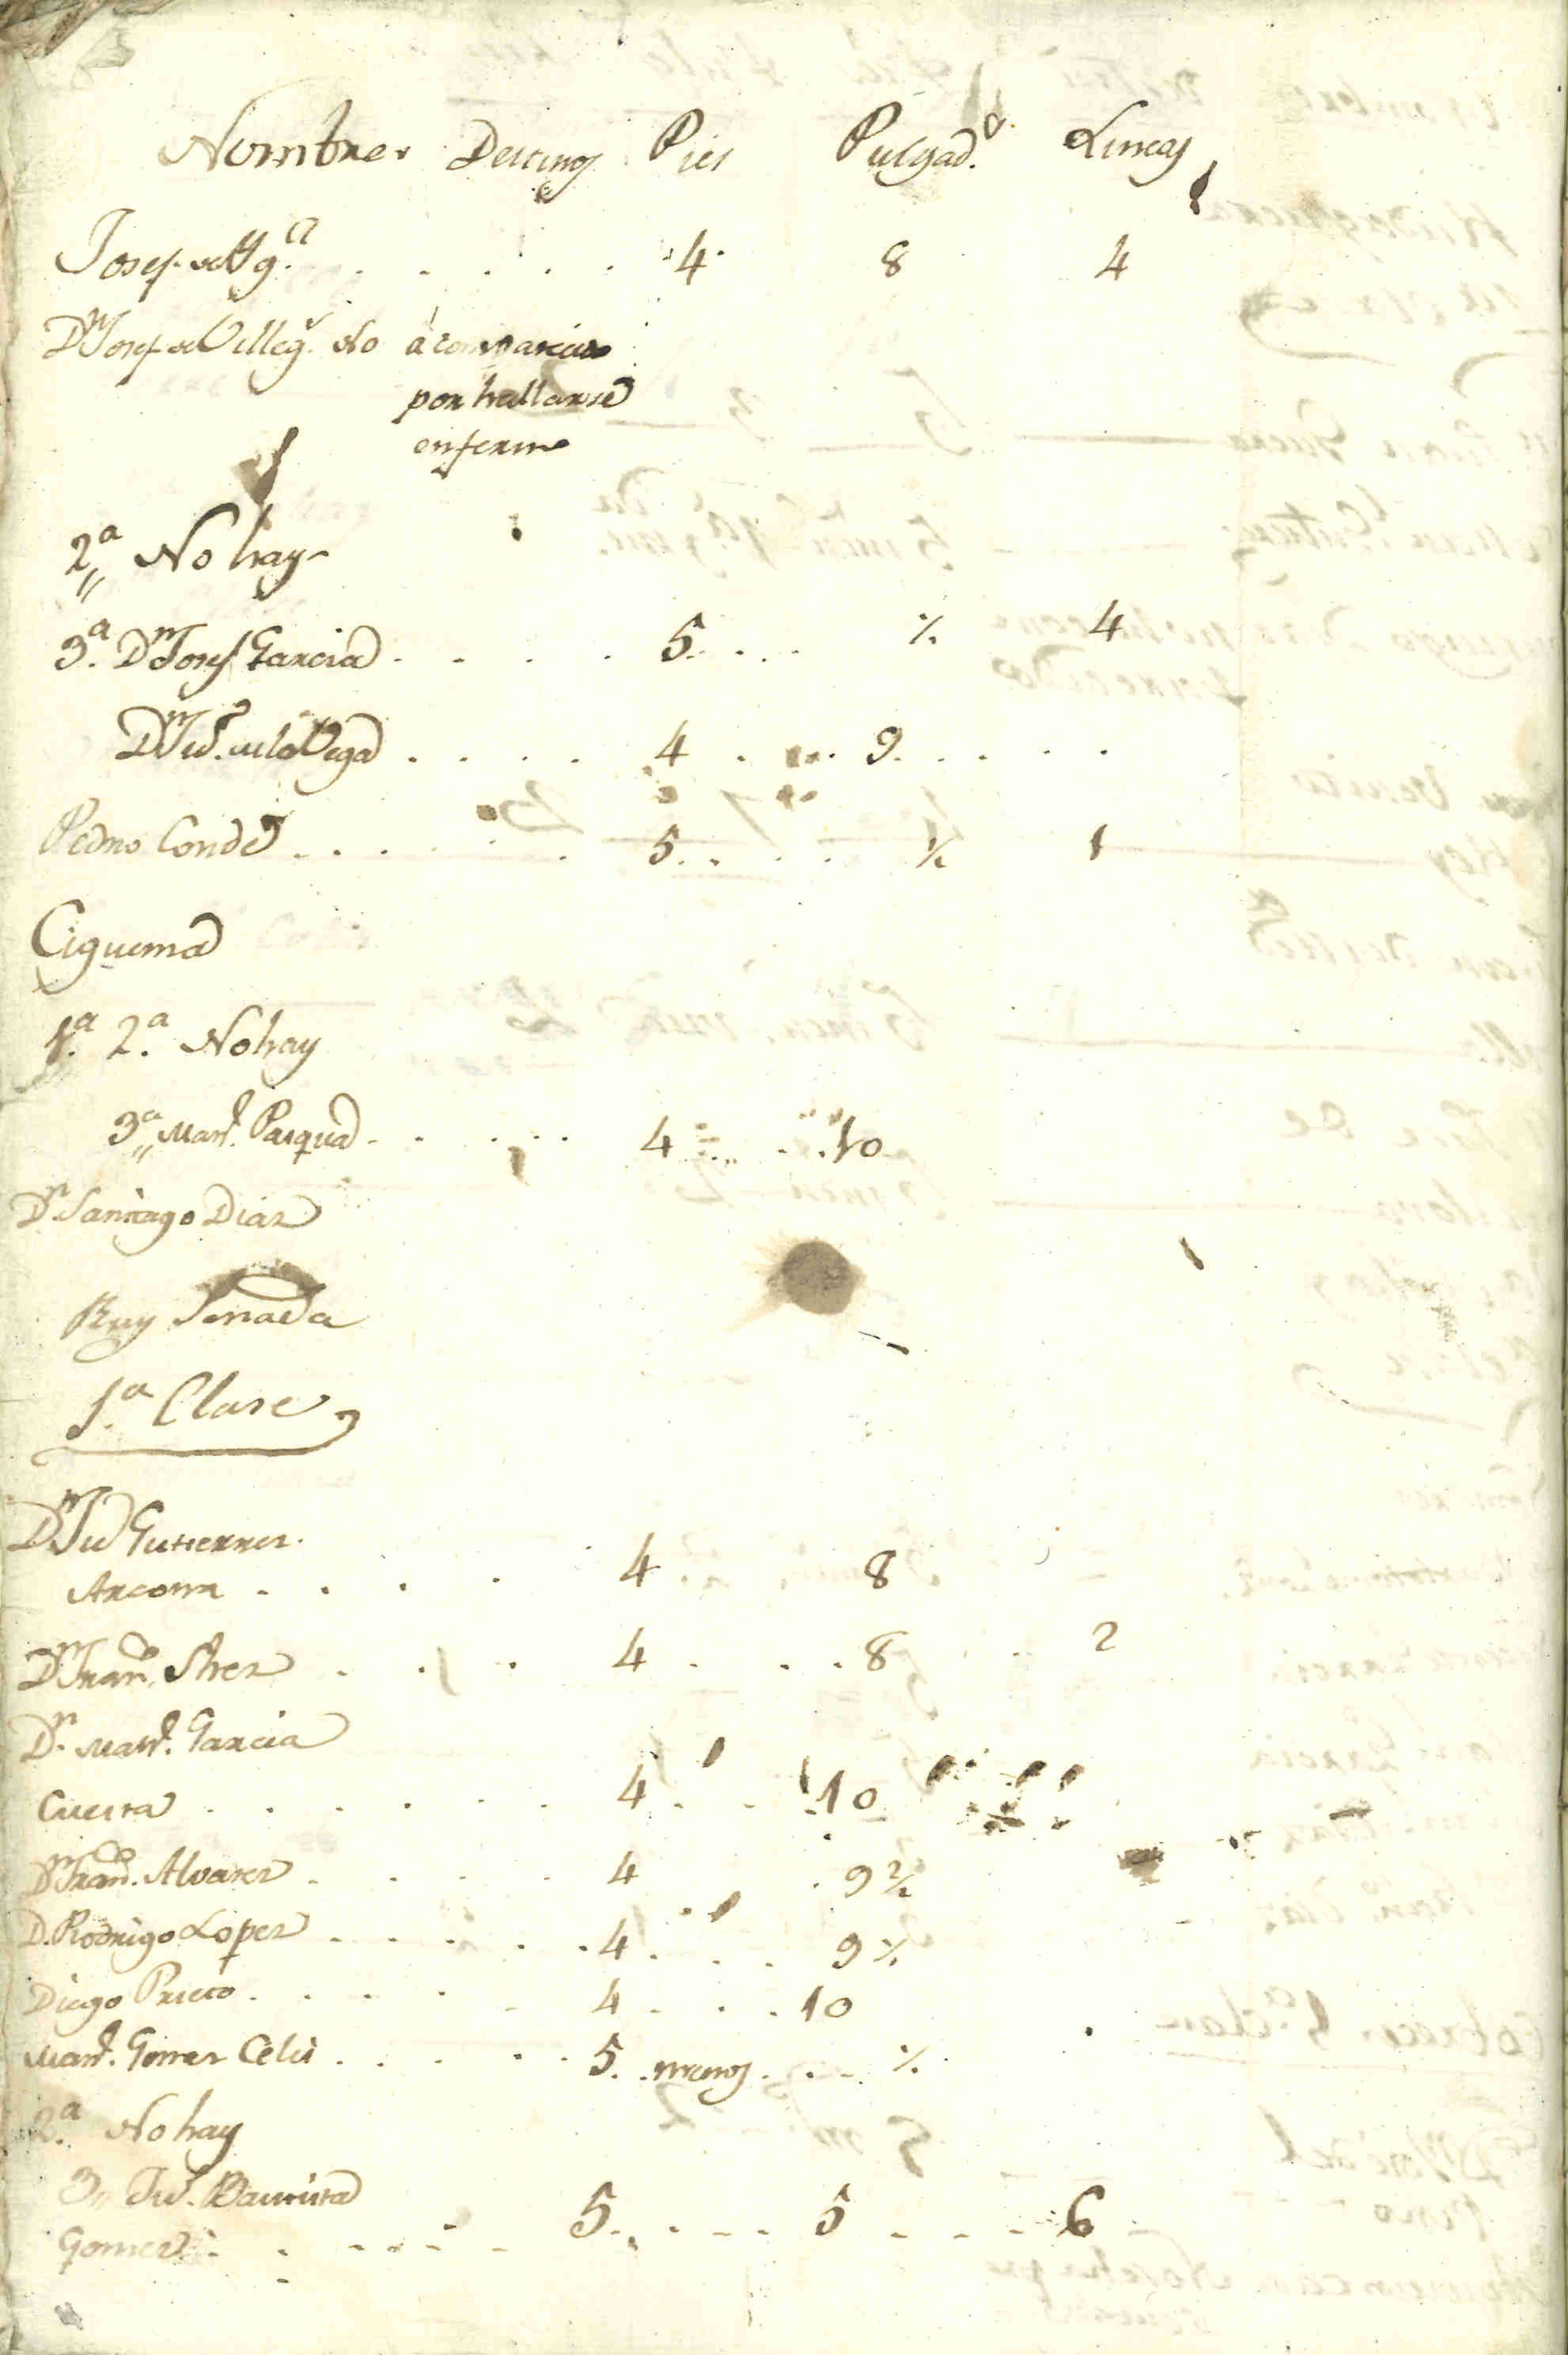 Nombres Destinos Pies Pulgad.s Lineas
Josef de 4 8 4
Dn Josef de Villeg.s No a comparecido
por hallarse
enfermo
2a No hay
3a. Dn Josef Garcia 5 ½ 4
Dn Ju.o de la Vega 4 9
Pedro Conde 5 ½ 1
Ciguenza
1a. 2a. No hay
3a Man.l Pasqua 4 10
Dn Santiago Diaz
Ruy Senada
1a. Clase
Dn Ju Gutierrez
4 8
Dn Fran.co Shez 4 8 2
Dn. Man.l Garcia
Cuesta 4 10
Dn Fran.co Alvarez 4 9 ½
D. Rodrigo Lopez 4 9 ½
Diego Prieto 4 10
Man.l Gomez Celis 5 menos ½
2a. No hay
3 Ju.n Bautista
Gomez 5 5 6